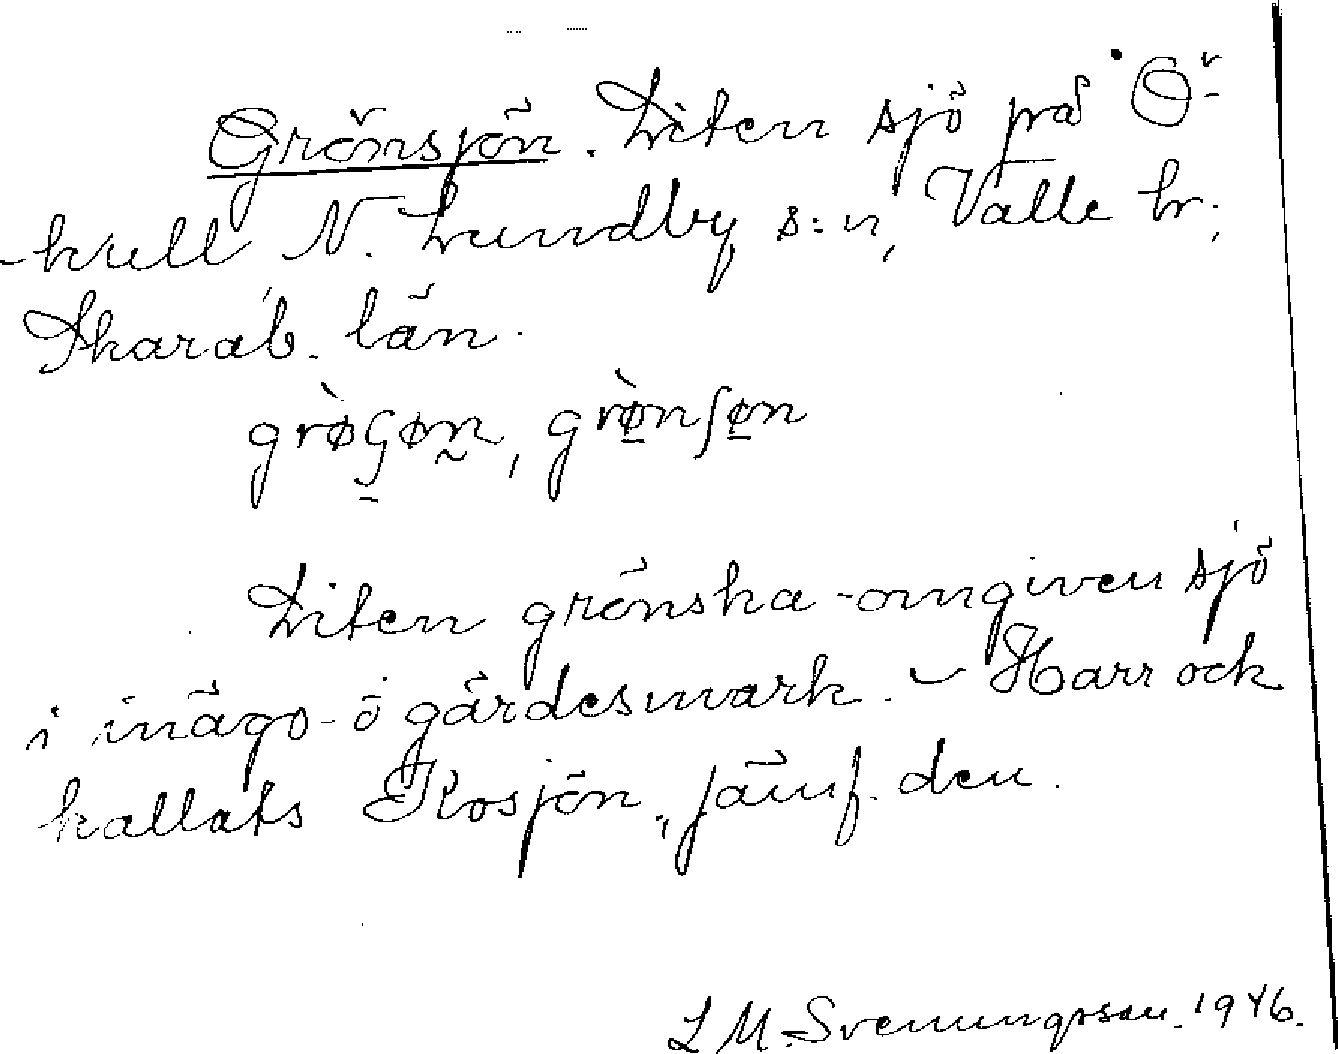 Grönsjön. Liten sjö på Ö-
kull N. Lundby s:n, Valle hr.,
Skarab. län.
grøʃøn, grønʃøn
Liten grönska-omgiven sjö
i inägo- o gärdesmark. – Harr ock
kallats Kosjön, jämf. den.
L M. Svenungsson. 1946.